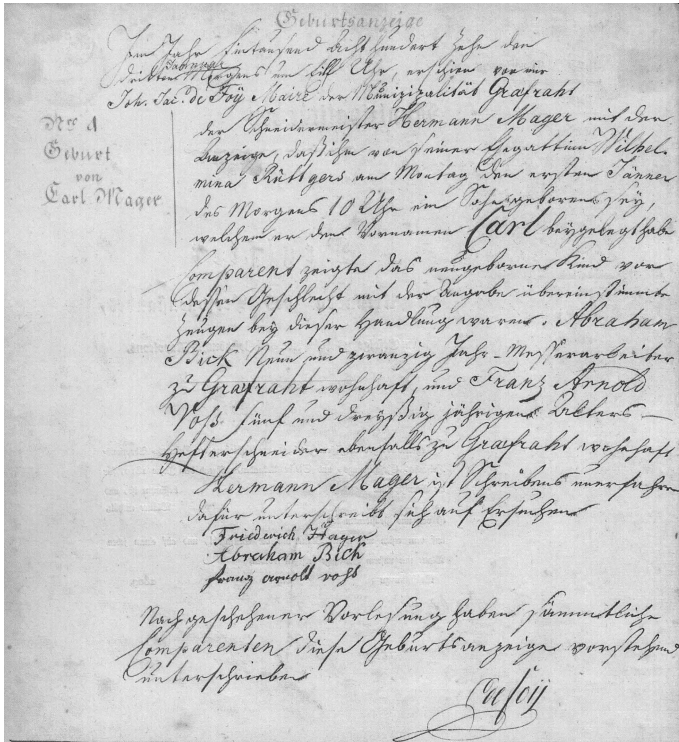 Geburtsanzeige
Im Jahr Eintausend Acht hundert Zehn den
dritten Januar Morgens um Uhr, erschien vor mir
Joh. Jac. de Foÿ Maire der Munizipalität Græfraht
der Schneidermeister Hermann Mager mit der
Anzeige, daß ihm von seiner Ehegattinn Wilhel-
mina Rüttgers am Montag den ersten Jänner
des Morgens 10 Uhr ein Sohn geboren seÿ,
welchem er den Vornamen Carl beygelegt habe
Nro. 1
Geburt
von
Carl Mager
Comparent zeigte das neugeborne Kind vor
dessen Geschlecht mit der Angabe übereinstimmte
Zeugen beÿ dieser Handlung waren. Abraham
Bick Neun und zwanzig Jahr - Messerarbeiter
zu Græfraht wohnhaft, und Franz Arnold
Voß fünf und dreÿßig jährigen Alters —
Hefterschneider ebenfalls zu Græfraht wohnhaft
Hermann Mager ist Schreibens unerfahren
dafür unterschreibt sich auf Ersuchen
Friederich Hager
Abraham Bick
franz arnolt vohs
Nach geschehener Vorlesung haben sämmtliche
Comparenten diese Geburtsanzeige vorstehend
unterschrieben
De foÿ